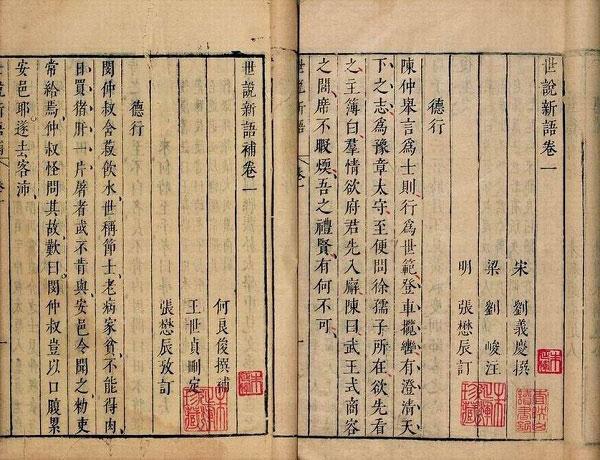 世說新語卷一
宋 劉義慶撰
梁 劉峻注
明 張懋辰訂
德行
陳仲舉言為士則行為世範登車攬轡有澄清天
下之志為豫章太守至便問徐孺子所在欲先看
之主簿白羣情欲府君先入廨陳曰武王式商容
之閭席不暇煗吾之禮賢有何不可
世說新語 卷一
世說新語補卷一
何良俊撰補
王世貞刪定
張懋辰攷訂
德行
閔仲叔含菽飲水世稱節士老病家貧不能得肉
日買猪肝一片屠者或不肯與安邑令聞之勑吏
常給焉仲叔怪問其故歎曰閔仲叔豈以口腹累
安邑耶遂去客沛
世說新語補